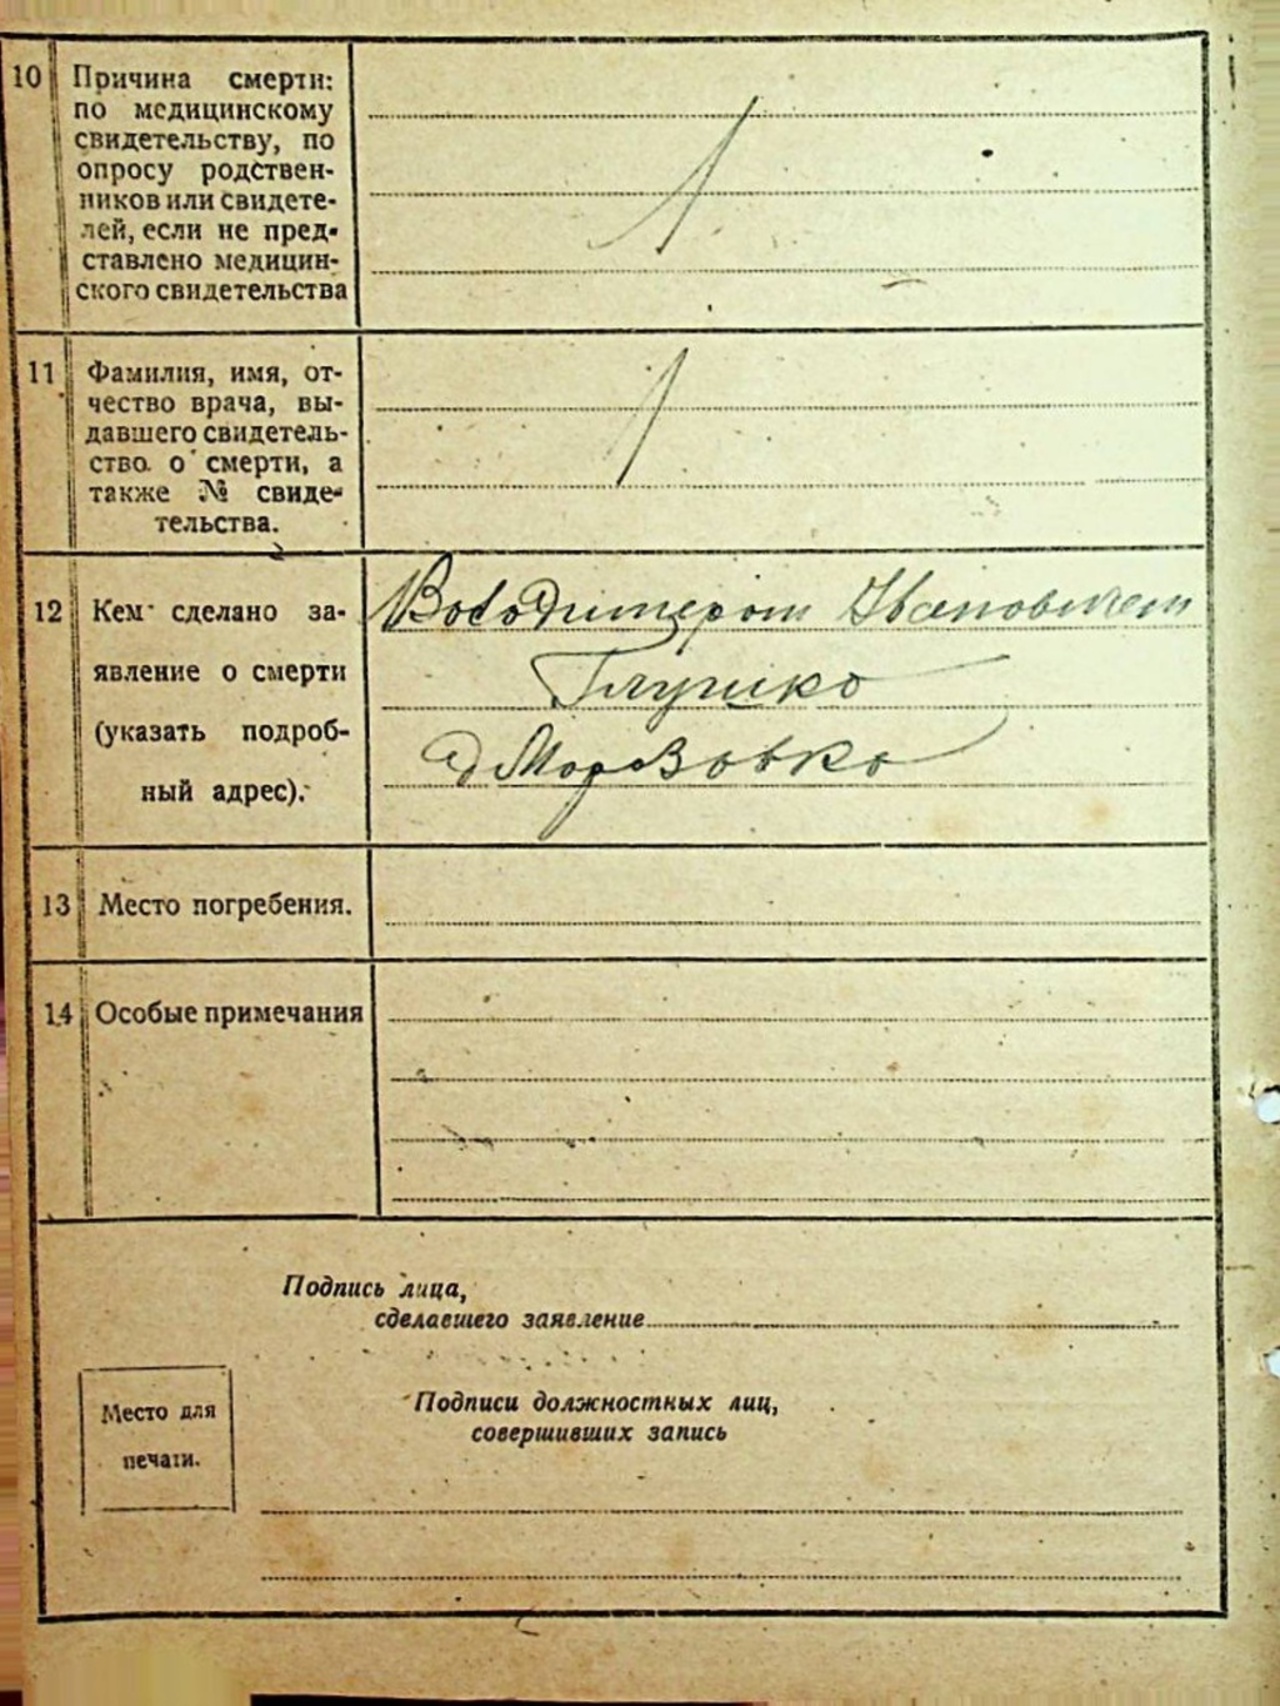 10 Причина смерти:
по медицинскому
свидетельству, по
опросу родствен-
ников или свидете-
лей, если не пред-
ставлено медицин-
ского свидетельства
11 Фамилия, имя, от-
чество врача, вы-
давшего свидетель-
ство о смерти, а
также № свиде-
тельства.
12 Кем сделано за-
явление о смерти
(указать подроб-
ный адрес).
Володимером Ивановичем
Глушко
д Морозовка
13 Место погребения.
14 Особые примечания
Подпись лица,
сделавшего заявление
Подписи должностных лиц,
совершивших запись
Место для
печати.